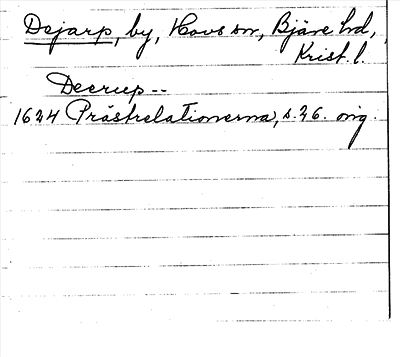 Dejarp, by, Hovs sn, Bjäre hd,
Krist. l.
Deerup --
1624 Prästrelationerna, s. 26. orig.